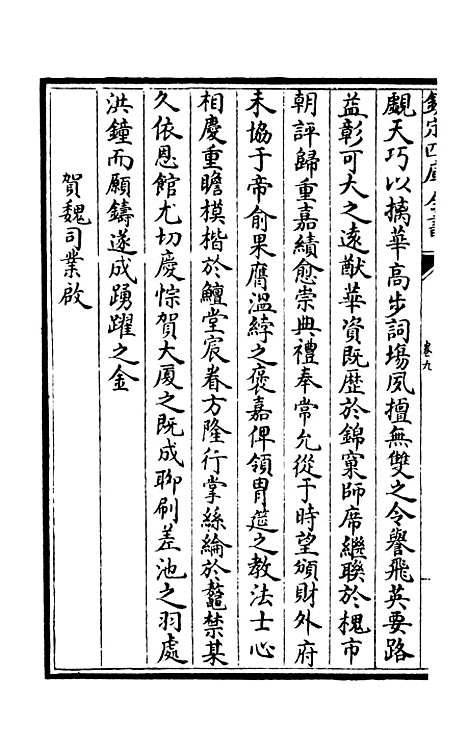 欽定四庫全書
卷九
覷天巧以摛華高步詞塲夙擅無雙之令譽飛英要路
益彰可大之遠猷華資既歴於錦窠師席繼聯於槐市
朝評歸重嘉績愈崇典禮奉常允從于時望頒財外府
未協于帝俞果膺溫綍之褒嘉俾領胄筵之教法士心
相慶重瞻模楷於鱣堂宸眷方隆行掌絲綸於鼇禁某
久依恩館尤切慶悰賀大厦之既成聊刷差池之羽處
洪鐘而願鑄遂成踴躍之金
賀魏司業啟